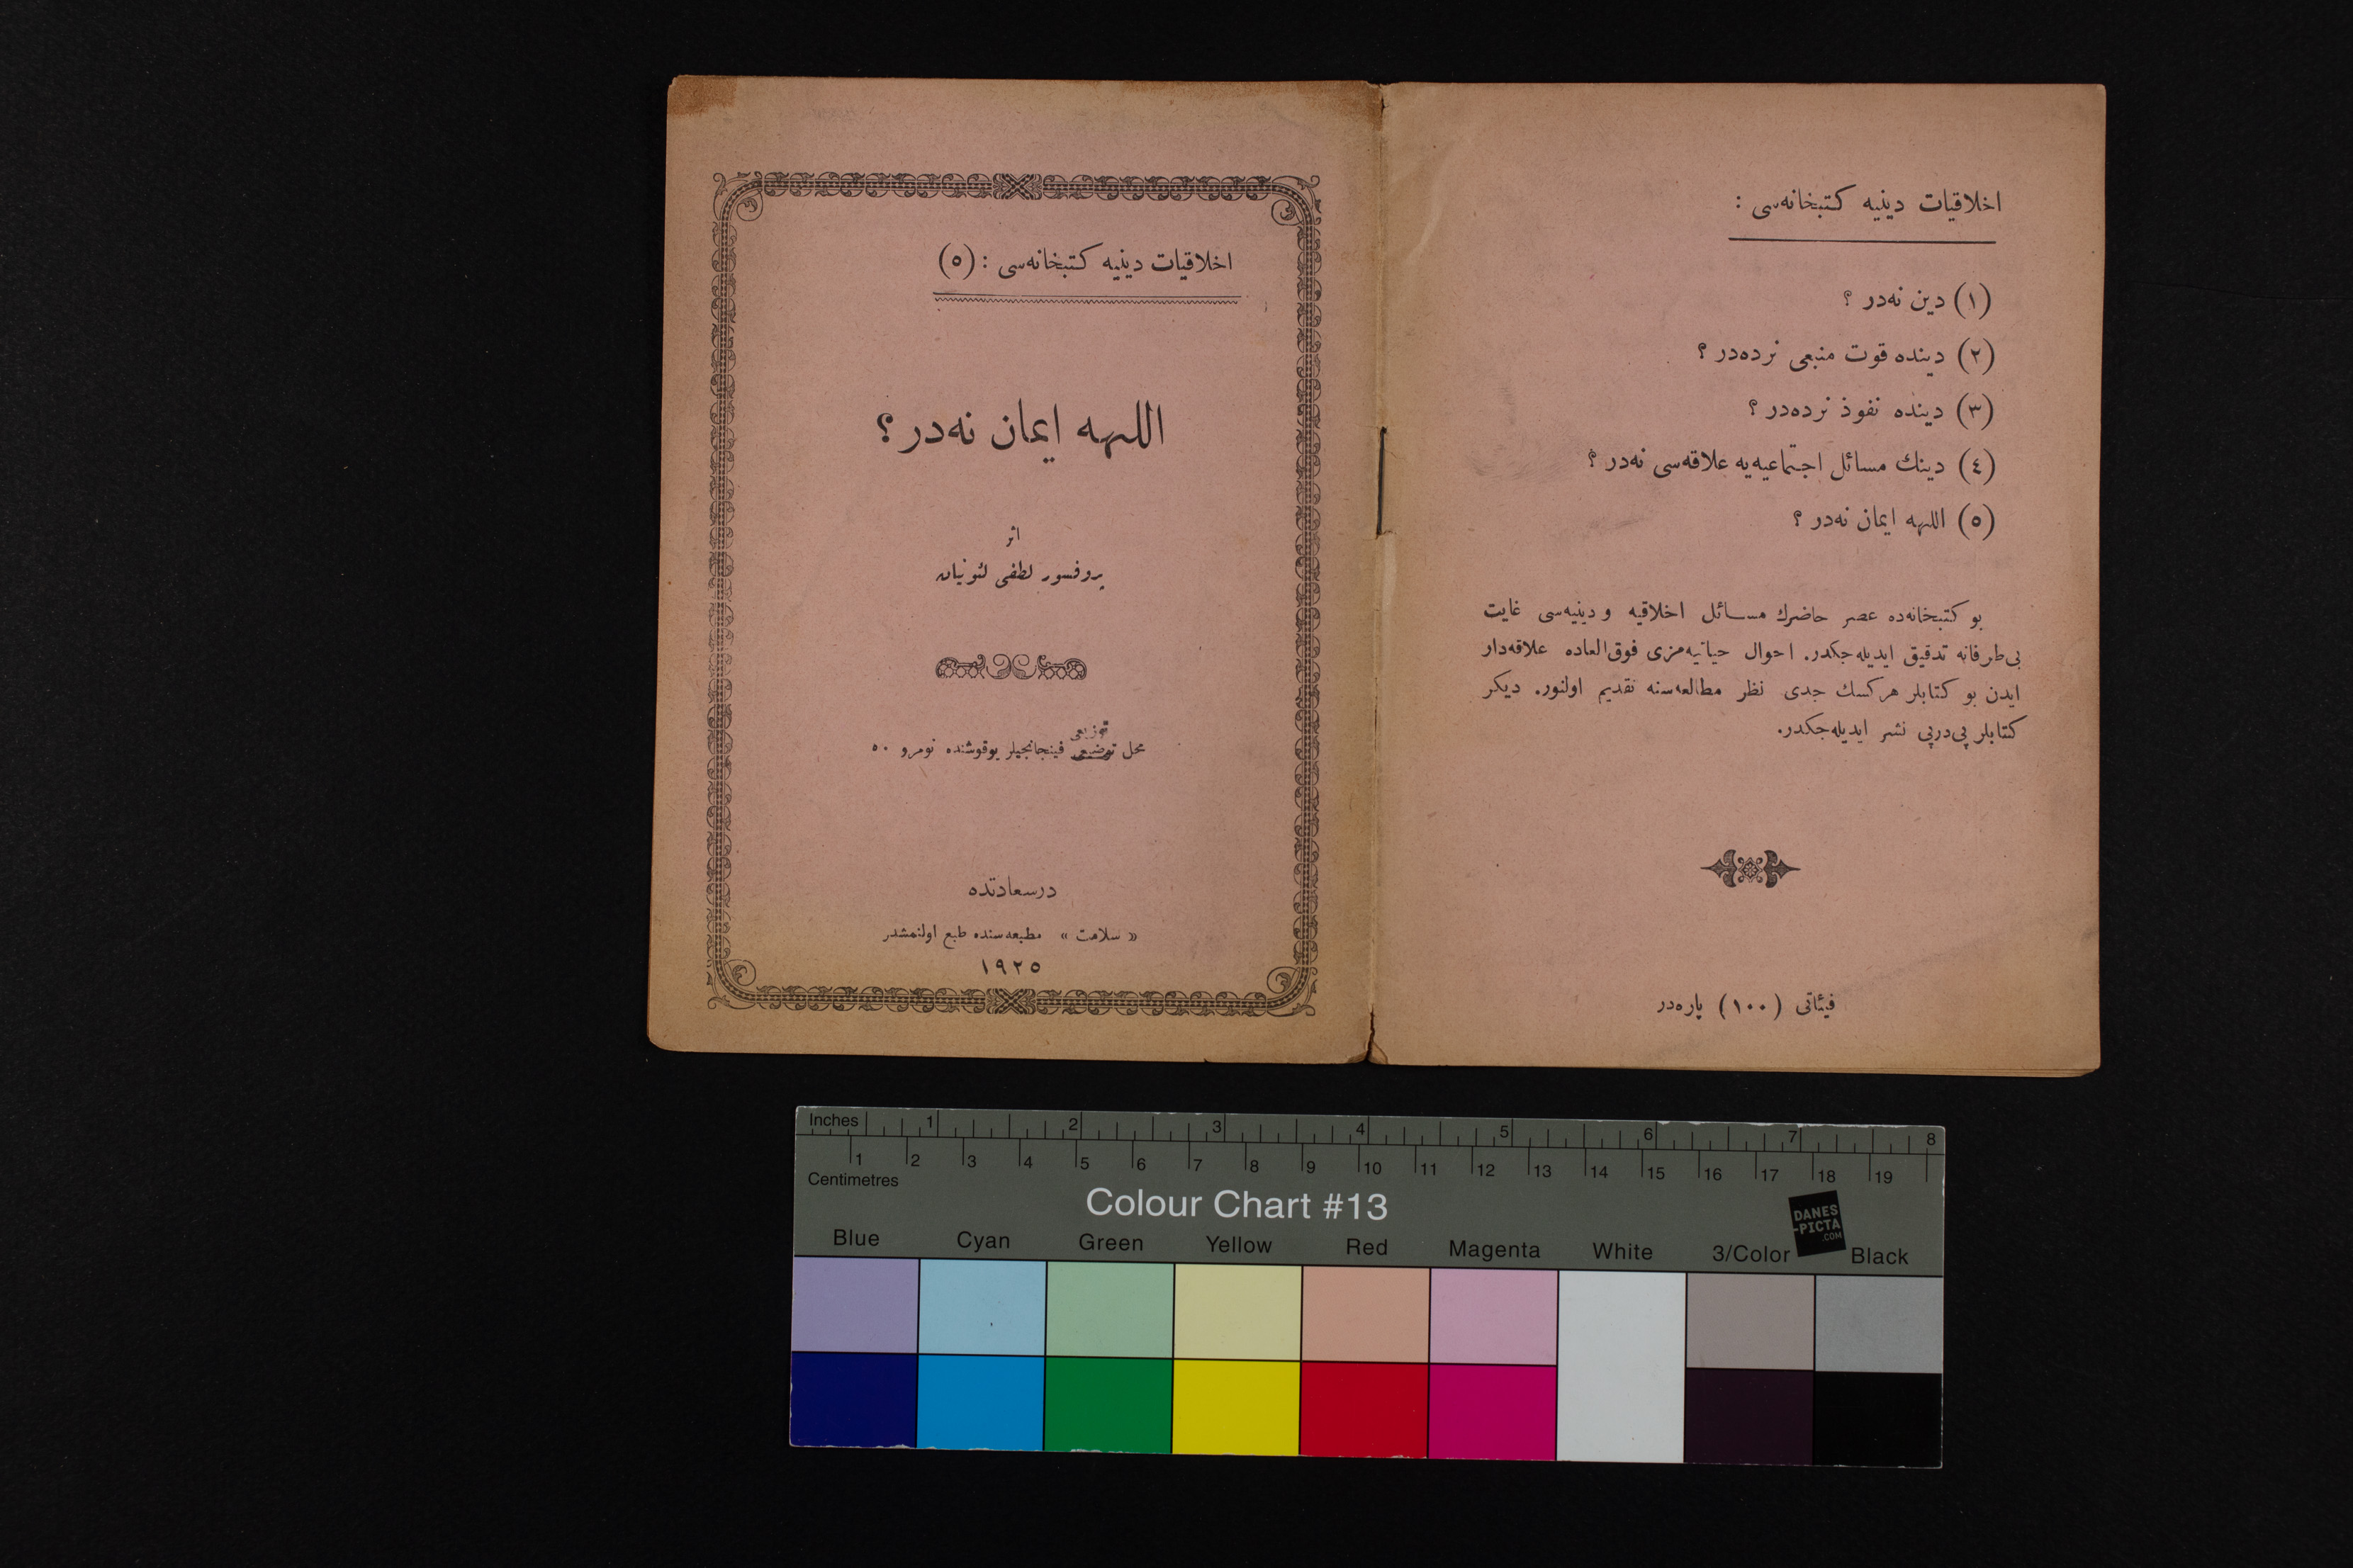 اخلاقیات دینیه كتبخانه‌سی :
(١) دین نه‌در ؟
(٢) دینده قوت منبعی نرده‌در ؟
(٣) دینده نفوذ نرده‌در ؟
(٤) دینك مسائل اجتماعیه‌یه علاقه‌سی نه‌در ؟
(٥) اللهه ایمان نه‌در ؟
بو كتبخانه‌ده عصر حاضرك مسائل اخلاقیه و دینیه‌سی غایت
بی‌طرفانه تدقیق ایدیله‌جكدر. احوال حیاتیه‌مزی فوق‌العاده علاقه‌دار
ایدن بو كتابلر هركسك جدی نظر مطالعه‌سنه تقدیم اولنور. دیكر
كتابلر پی‌درپی نشر ایدیله‌جكدر.
فیئاتی (١٠٠) پاره‌در
اخلاقیات دینیه كتبخانه‌سی : (٥)
اللهه ایمان نه‌در ؟
اثر
پروفسور لطفی لئونیان
توزیعی
محل توضیعی فینجانجیلر یوقوشنده نومرو ٥٠
درسعادتده
« سلامت » مطبعه‌سنده طبع اولنمشدر
١٩٢٥
Inches 1 2 3 4 5 6 7 8
1 2 3 4 5 6 7 8 9 10 11 12 13 14 15 16 17 18 19
Centimetres
Colour Chart #13
DANES
-PICTA
.COM
Blue Cyan Green Yellow Red Magenta White 3/Color Black